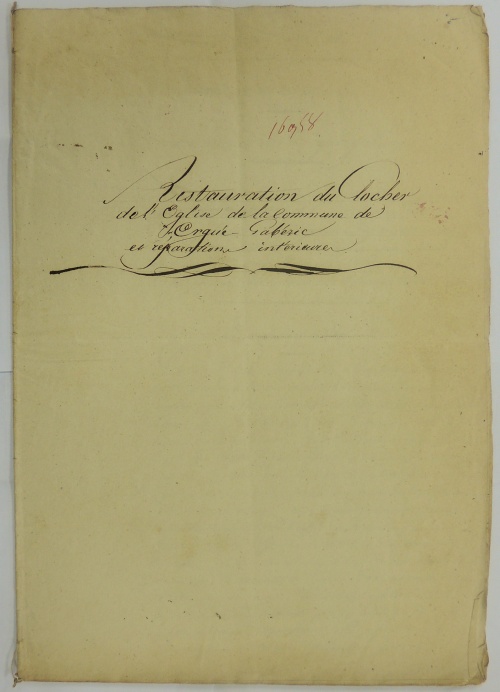 Restauration du Clocher
de l'Eglise de la Commune de
d'Ergué-Gabéric
et réparations intérieures